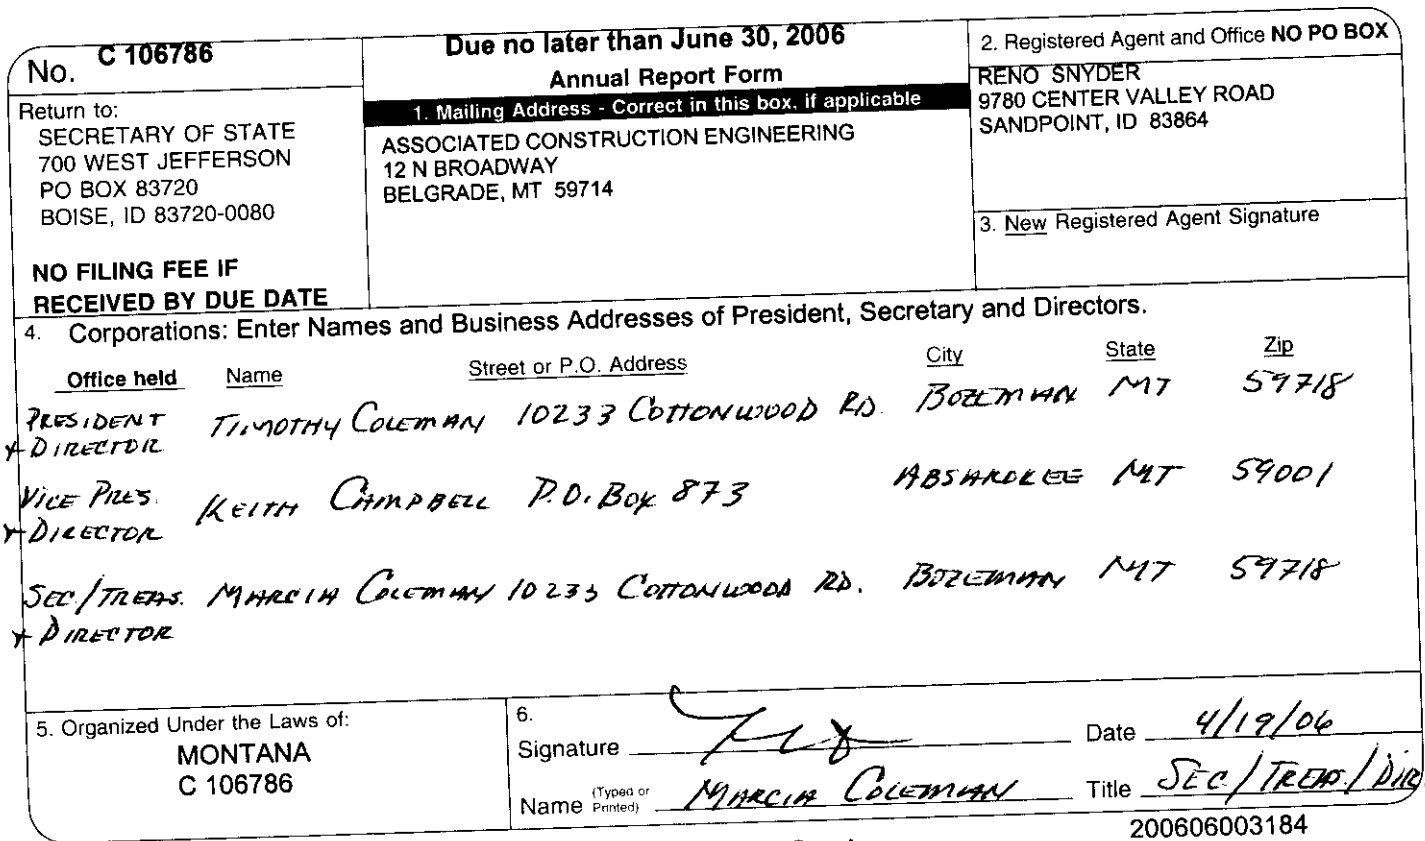 No. C 106786
Return to:
SECRETARY OF STATE
700 WEST JEFFERSON
PO BOX 83720
BOISE, ID 83720-0080
NO FILING FEE IF
RECEIVED BY DUE DATE
Due no later than June 30, 2006
Annual Report Form
1. Mailing Address - Correct in this box, if applicable
ASSOCIATED CONSTRUCTION ENGINEERING
12 N BROADWAY
BELGRADE, MT 59714
2. Registered Agent and Office NO PO BOX
RENO SNYDER
9780 CENTER VALLEY ROAD
SANDPOINT, ID 83864
3. New Registered Agent Signature
4. Corporations: Enter Names and Business Addresses of President, Secretary and Directors.
Office held Name Street or P.O. Address City State Zip
PRESIDENT TIMOTHY COLEMAN 10233 COTTONWOOD RD. BOZEMAN MT 59718
+ DIRECTOR
VICE PRES. KEITH CAMPBELL P.O. BOX 873 ABSAROKEE MT 59001
+ DIRECTOR
SEC/TREAS. MARCIA COLEMAN 10233 COTTONWOOD RD. BOZEMAN MT 59718
+ DIRECTOR
5. Organized Under the Laws of:
MONTANA
C 106786
6.
Signature Date 4/19/06
Name (Typed or Printed) MARCIA COLEMAN Title SEC/TREAS/DIR
200606003184